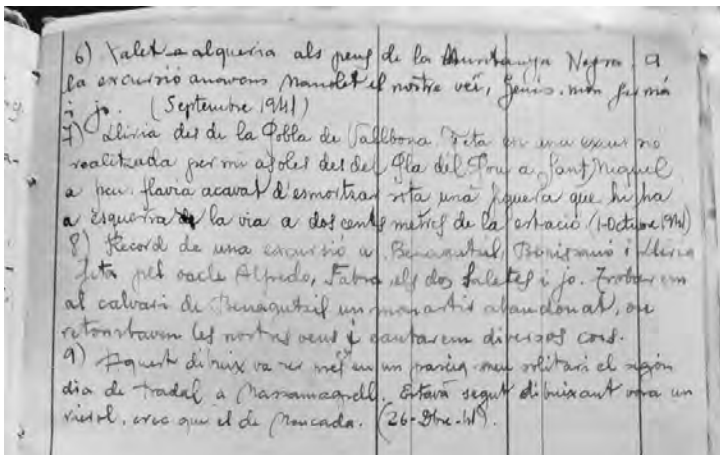 6) Xalet-alqueria als peus de la Muntanya Negra. A
la excursió anavens Manolet el nostre veí, Genís, mon germà
i jo. (Septembre 1941)
7) Lliria des de la Pobla de Vallbona. Feta en una excursió
realitzada per mi a soles des del Pla del Pou a Sant Miquel
a peu. Havia acavat d'esmortzar sota una figuera que hi ha
a esquerra de la via a dos cents metres de la estació. (1-Octubre 1941)
8) Record de una excursió a Benaguasil, Benisanó i Lliria
feta pel oncle Alfredo, Fabra, els dos Saletes i jo. Trobarem
al calvari de Benaguasil un monastir abandonat, on
retonbaven les nostres veus i cantarem diversos cors.
9) Aquest dibuix va ser fet en un passeig meu solitari el segon
dia de Nadal a Massamagrell. Estava segut dibuixant vora un
rierol, crec que el de Moncada. (26-Dbre-41).